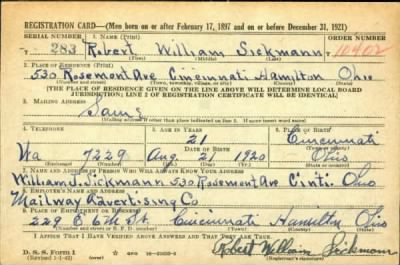 REGISTRATION CARD—(Men born on or after February 17, 1897 and on or before December 31, 1921)
SERIAL NUMBER 1. NAME (Print) ORDER NUMBER
T 283 Robert William Sickmann T 10402
(First) (Middle) (Last)
2. PLACE OF RESIDENCE (Print)
530 Rosemont Ave Cincinnati Hamilton Ohio
(Number and street) (Town, township, village, or city) (County) (State)
[THE PLACE OF RESIDENCE GIVEN ON THE LINE ABOVE WILL DETERMINE LOCAL BOARD
JURISDICTION; LINE 2 OF REGISTRATION CERTIFICATE WILL BE IDENTICAL]
3. MAILING ADDRESS
Same
[Mailing address if other than place indicated on line 2. If same insert word same]
4. TELEPHONE 5. AGE IN YEARS 6. PLACE OF BIRTH
21 Cincinnati
DATE OF BIRTH
Wa 7229 Aug. 21 1920 Ohio
7. NAME AND ADDRESS OF PERSON WHO WILL ALWAYS KNOW YOUR ADDRESS
William J. Sickmann 530 Rosemont Ave Cinti. Ohio
8. EMPLOYER'S NAME AND ADDRESS
Mailway Advertising Co
9. PLACE OF EMPLOYMENT OR BUSINESS
229 E 6th St. Cincinnati Hamilton Ohio
(Number and street or R. F. D. number) (Town) (County) (State)
I AFFIRM THAT I HAVE VERIFIED ABOVE ANSWERS AND THAT THEY ARE TRUE.
D. S. S. Form 1
(Revised 1-1-42) (over)
Robert William Sickmann
(Registrant's signature)